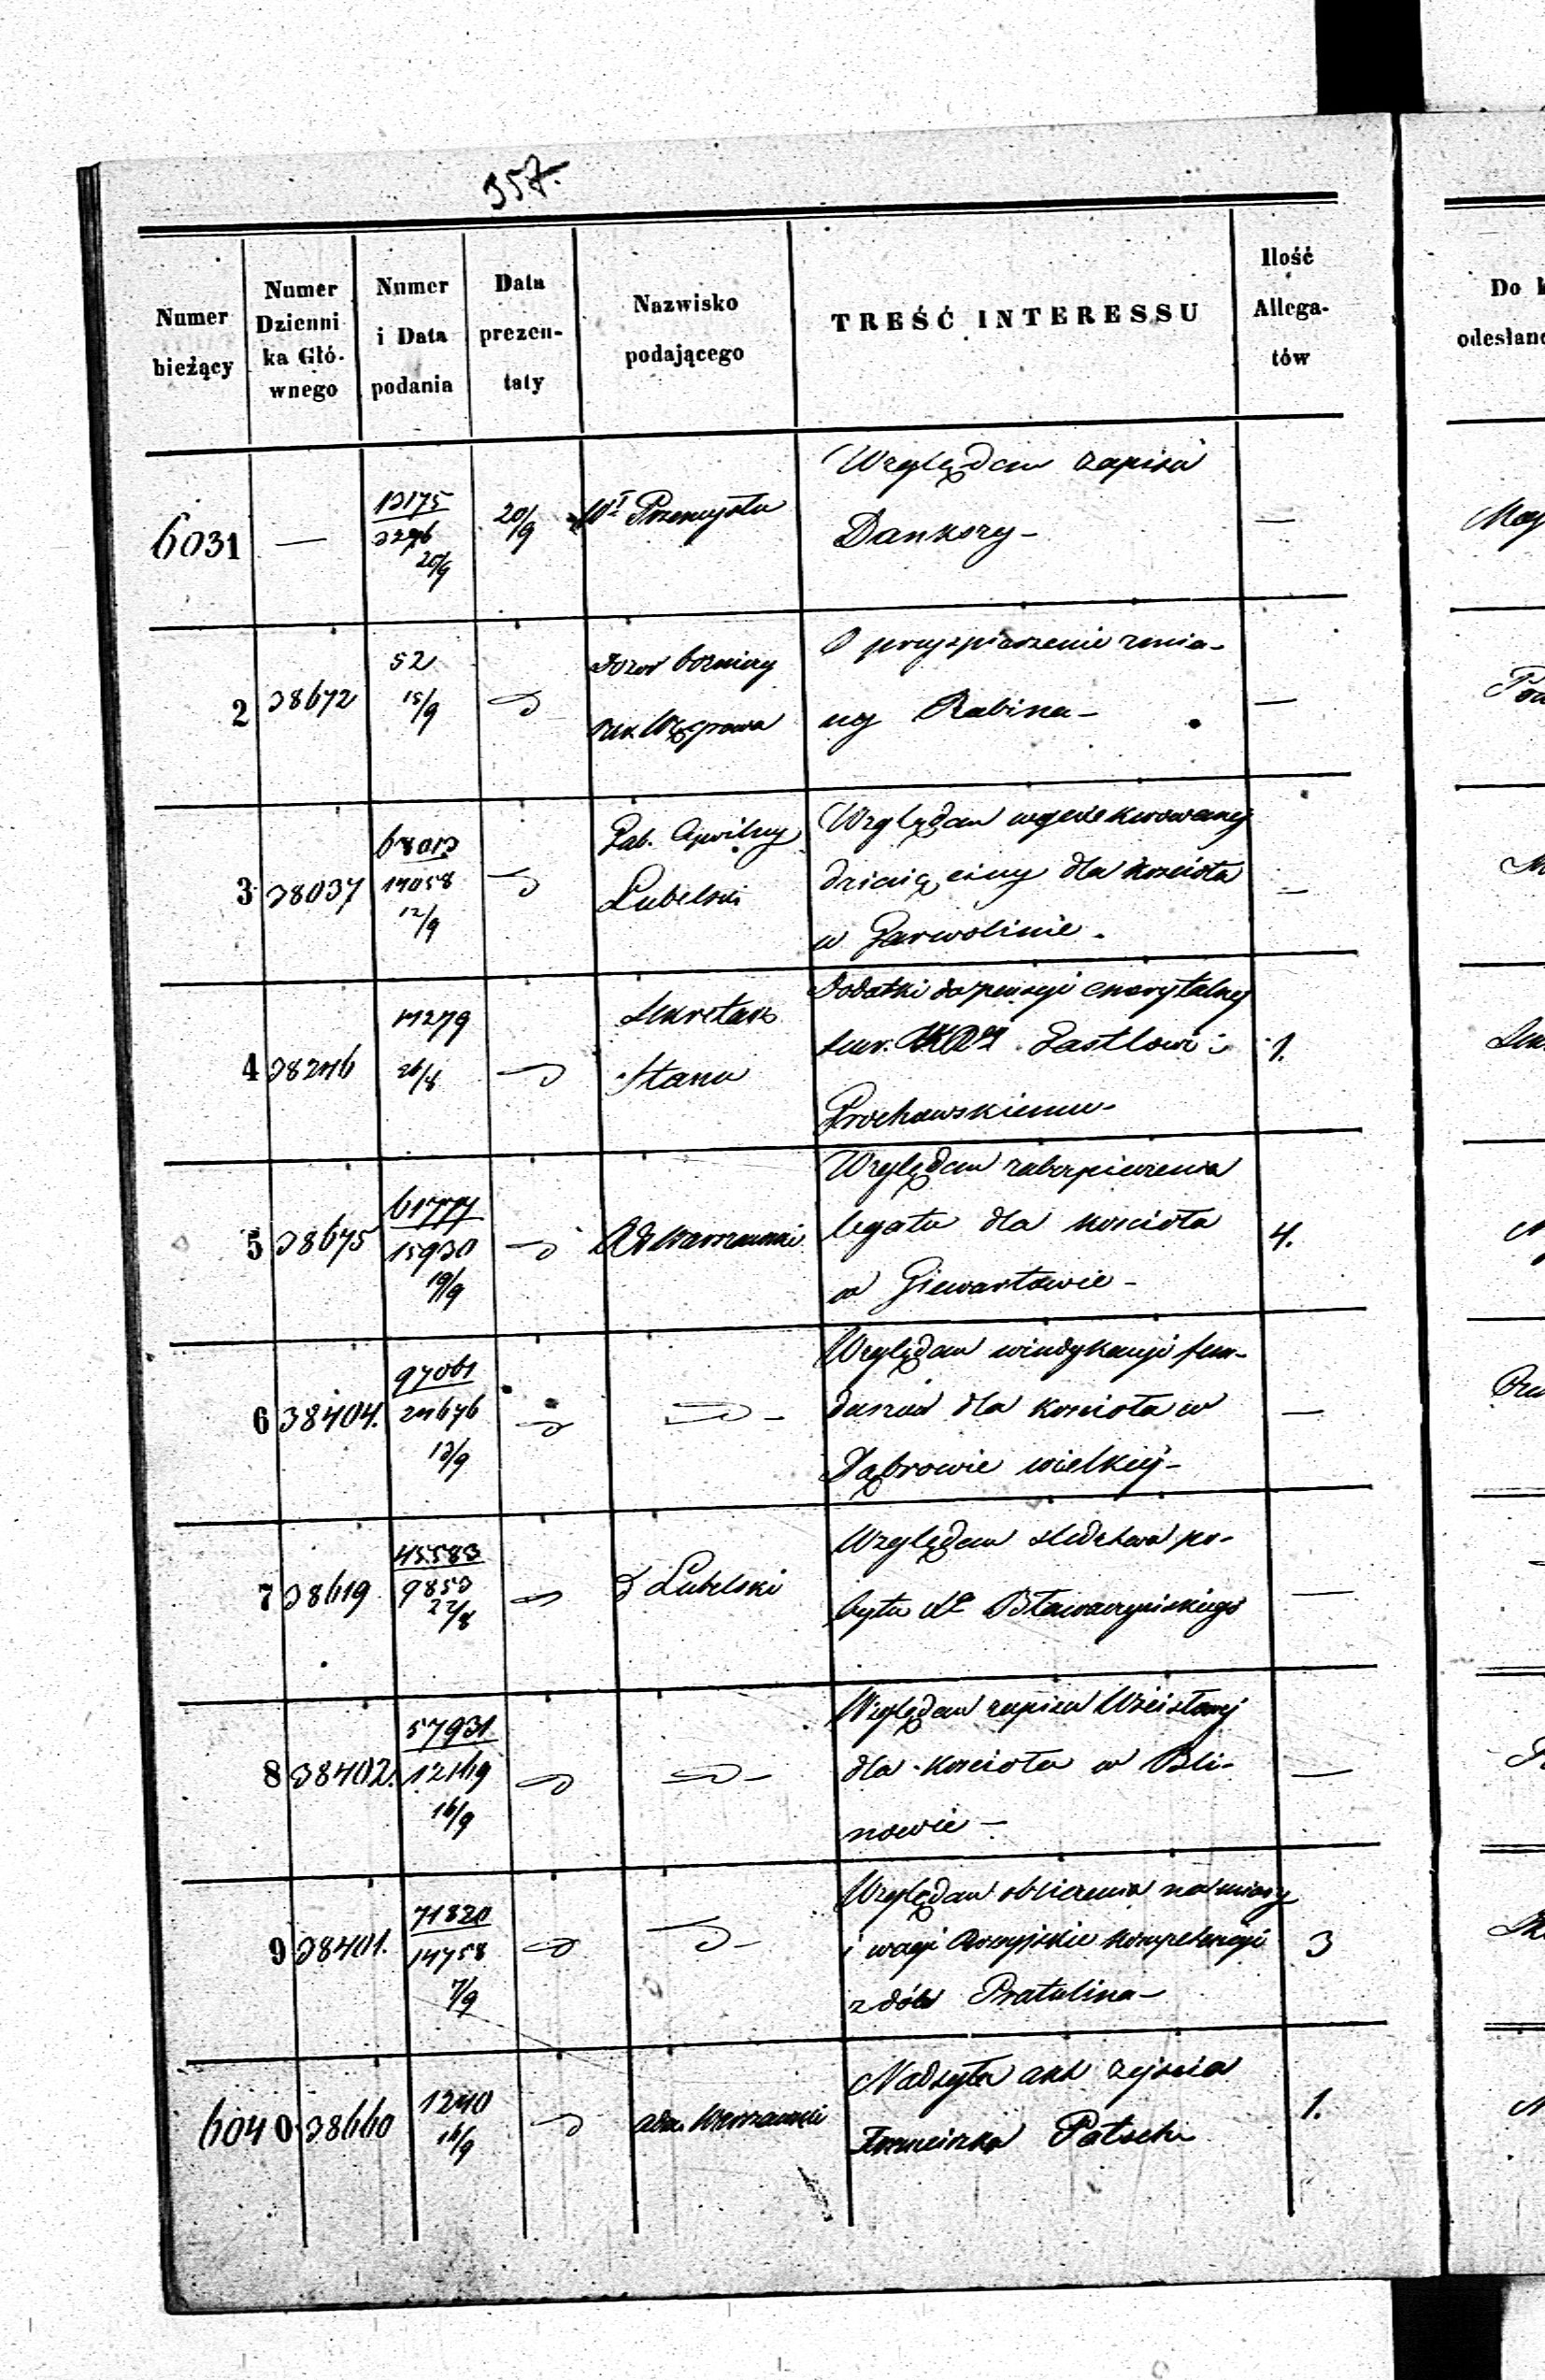 957.
Numer bieżący
Numer Dzienni ka Głó- wnego
Numer i Data podania
Data prezen- taty
Nazwisko podającego
TREŚĆ INTERESSU
Ilość Allega- tów
6031 — 13175 3296 20/9 20/9 Wł Przemysłu Względem zapisu —
Dankszy -
2 38672 52 15/9 Dozor bożniczy O przyspieszenie zmia- —
Węgrowa ny Rabina -
3 38037 14058 12/9 Gub. Cywilny Względem wyexekwowanej —
Lubelski dziesięciny dla kościoła
w Garwolinie -
4 38246 14279 26/8 Sekretarz Dodatki do pensyi emerytalnej 1.
Stanu
Grochowskiemu -
5 38675 15930 19/9 Warszawski Względem zabezpieczenia 4.
legatu dla kościoła
w Giewartowie -
6 38404. 97061 24676 13/9 Względem windykacyi fun- —
duszu dla kościoła w
Dąbrowie wielkiej -
7 38619 45583 9853 27/8 G Lubelski Względem śledztwa po- —
bytu
8 38402. 57931 16/9 Względem zapisu
dla kościoła w Bli- —
nowie -
9 38401. 71820 14758 7/9 Względem obliczenia na miary 3
i wagi kompetencyi
z dóbr Pratulina -
6040 38660 1240 16/9 Warszawski Nadsyła akt zejścia 1.
Franciszka
Do
odesłano